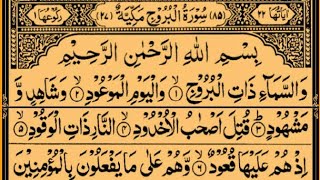 اٰيَاتُهَا ٢٢ (٨٥) سُوْرَةُ الْبُرُوْجِ مَكِّيَّةٌ (٢٧) رُكُوْعُهَا ١
بِسْمِ اللّٰهِ الرَّحْمٰنِ الرَّحِيْمِ
وَالسَّمَآءِ ذَاتِ الْبُرُوْجِ ۝١ وَالْيَوْمِ الْمَوْعُوْدِ ۝٢ وَشَاهِدٍ وَّ
مَشْهُوْدٍ ۝٣ قُتِلَ اَصْحٰبُ الْاُخْدُوْدِ ۝٤ النَّارِ ذَاتِ الْوَقُوْدِ ۝٥
اِذْ هُمْ عَلَيْهَا قُعُوْدٌ ۝٦ وَّهُمْ عَلٰى مَا يَفْعَلُوْنَ بِالْمُؤْمِنِيْنَ